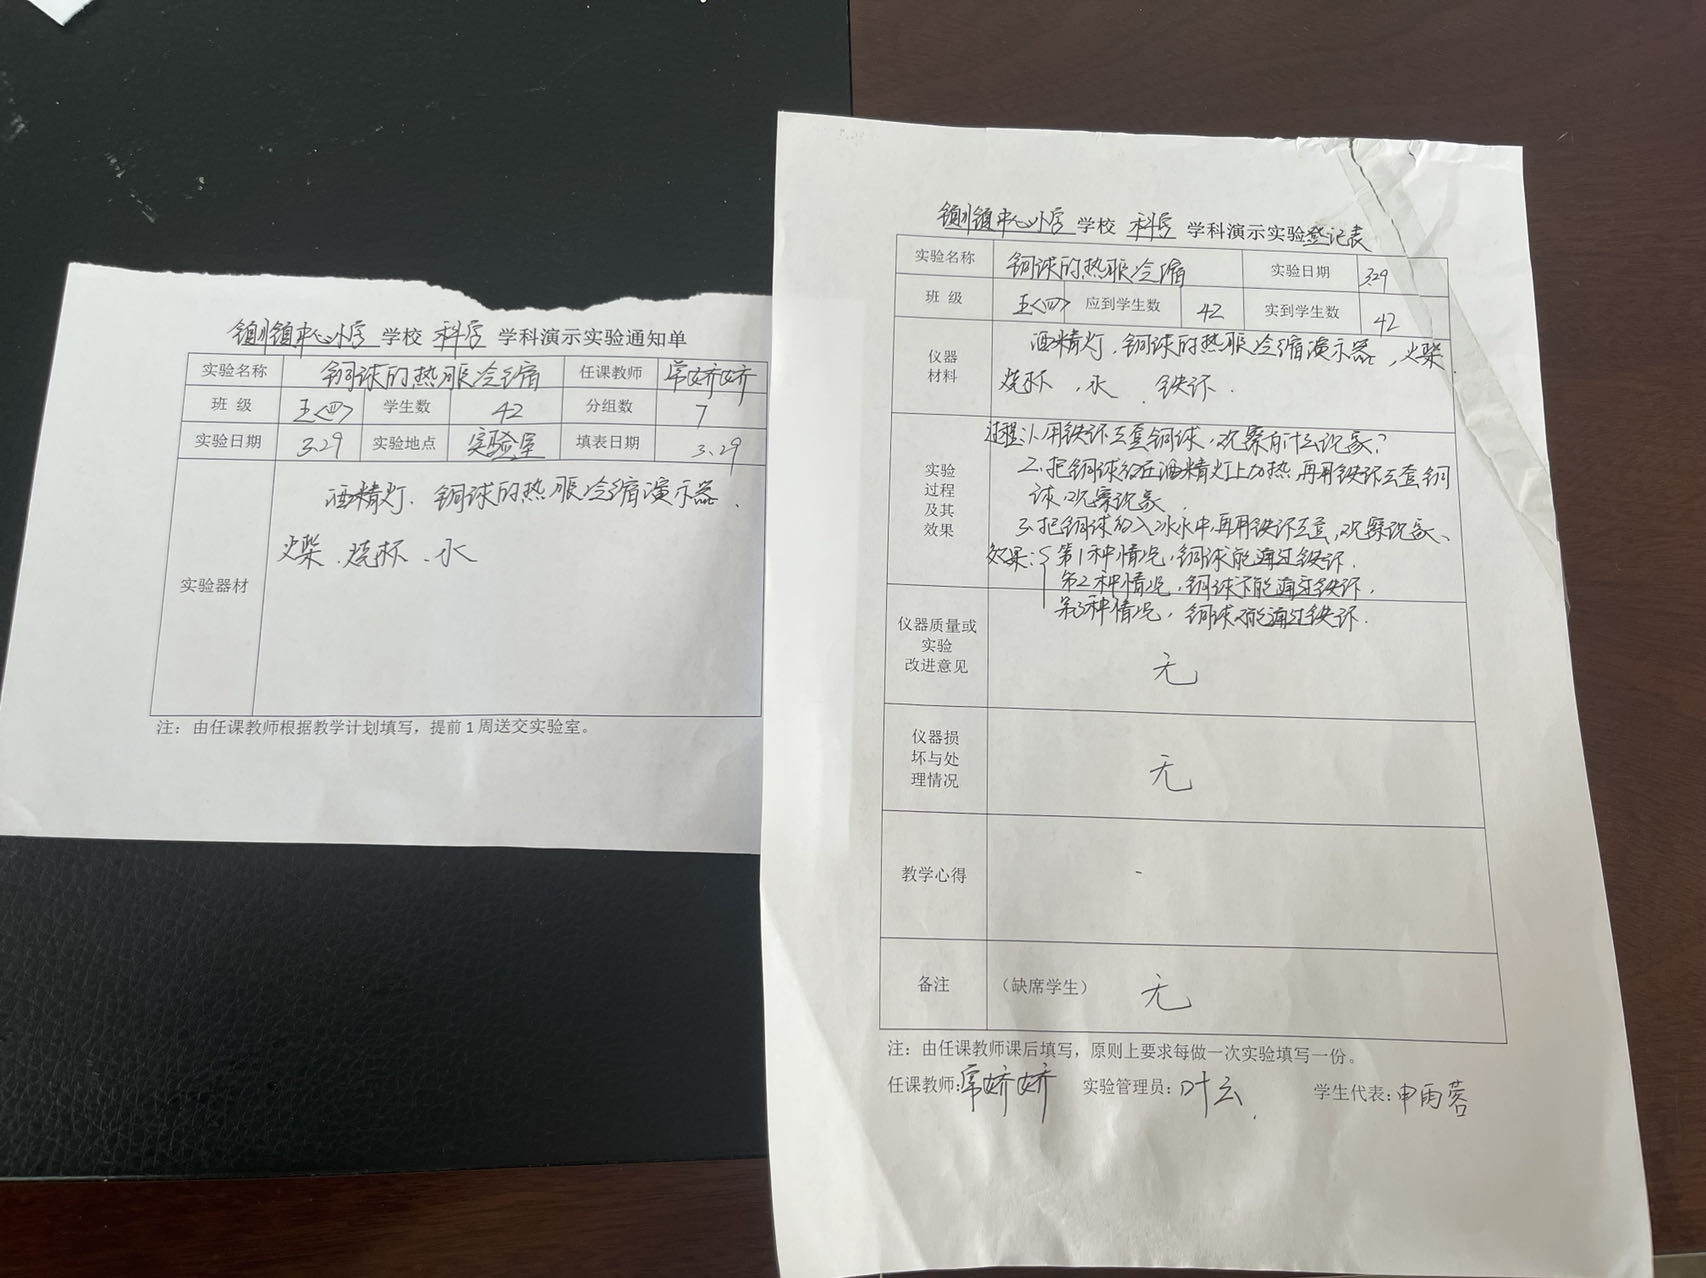 镇中心小学 学校 科学 学科演示实验通知单
实验名称 铜球的热胀冷缩 任课教师 常娇娇
班 级 五<四> 学生数 42 分组数 7
实验日期 3.29 实验地点 实验室 填表日期 3.29
实验器材
酒精灯、铜球的热胀冷缩演示器、
火柴、烧杯、水
注：由任课教师根据教学计划填写，提前1周送交实验室。
镇中心小学 学校 科学 学科演示实验登记表
实验名称 铜球的热胀冷缩 实验日期 3.29
班 级 五<四> 应到学生数 42 实到学生数 42
仪器
材料
酒精灯、铜球的热胀冷缩演示器，火柴
烧杯、水、铁环.
实验
过程
及其
效果
过程：1、用铁环去套铜球，观察有什么现象？
2、把铜球放在酒精灯上加热，再用铁环去套铜
球，观察现象
3、把铜球放入冰水中，再用铁环去套，观察现象、
效果：第1种情况，铜球能通过铁环.
第2种情况，铜球不能通过铁环.
第3种情况，铜球能通过铁环.
仪器质量或
实验
改进意见
无
仪器损
坏与处
理情况
无
教学心得
备注 （缺席学生） 无
注：由任课教师课后填写，原则上要求每做一次实验填写一份。
任课教师：常娇娇 实验管理员：叶云 学生代表：申雨蓉